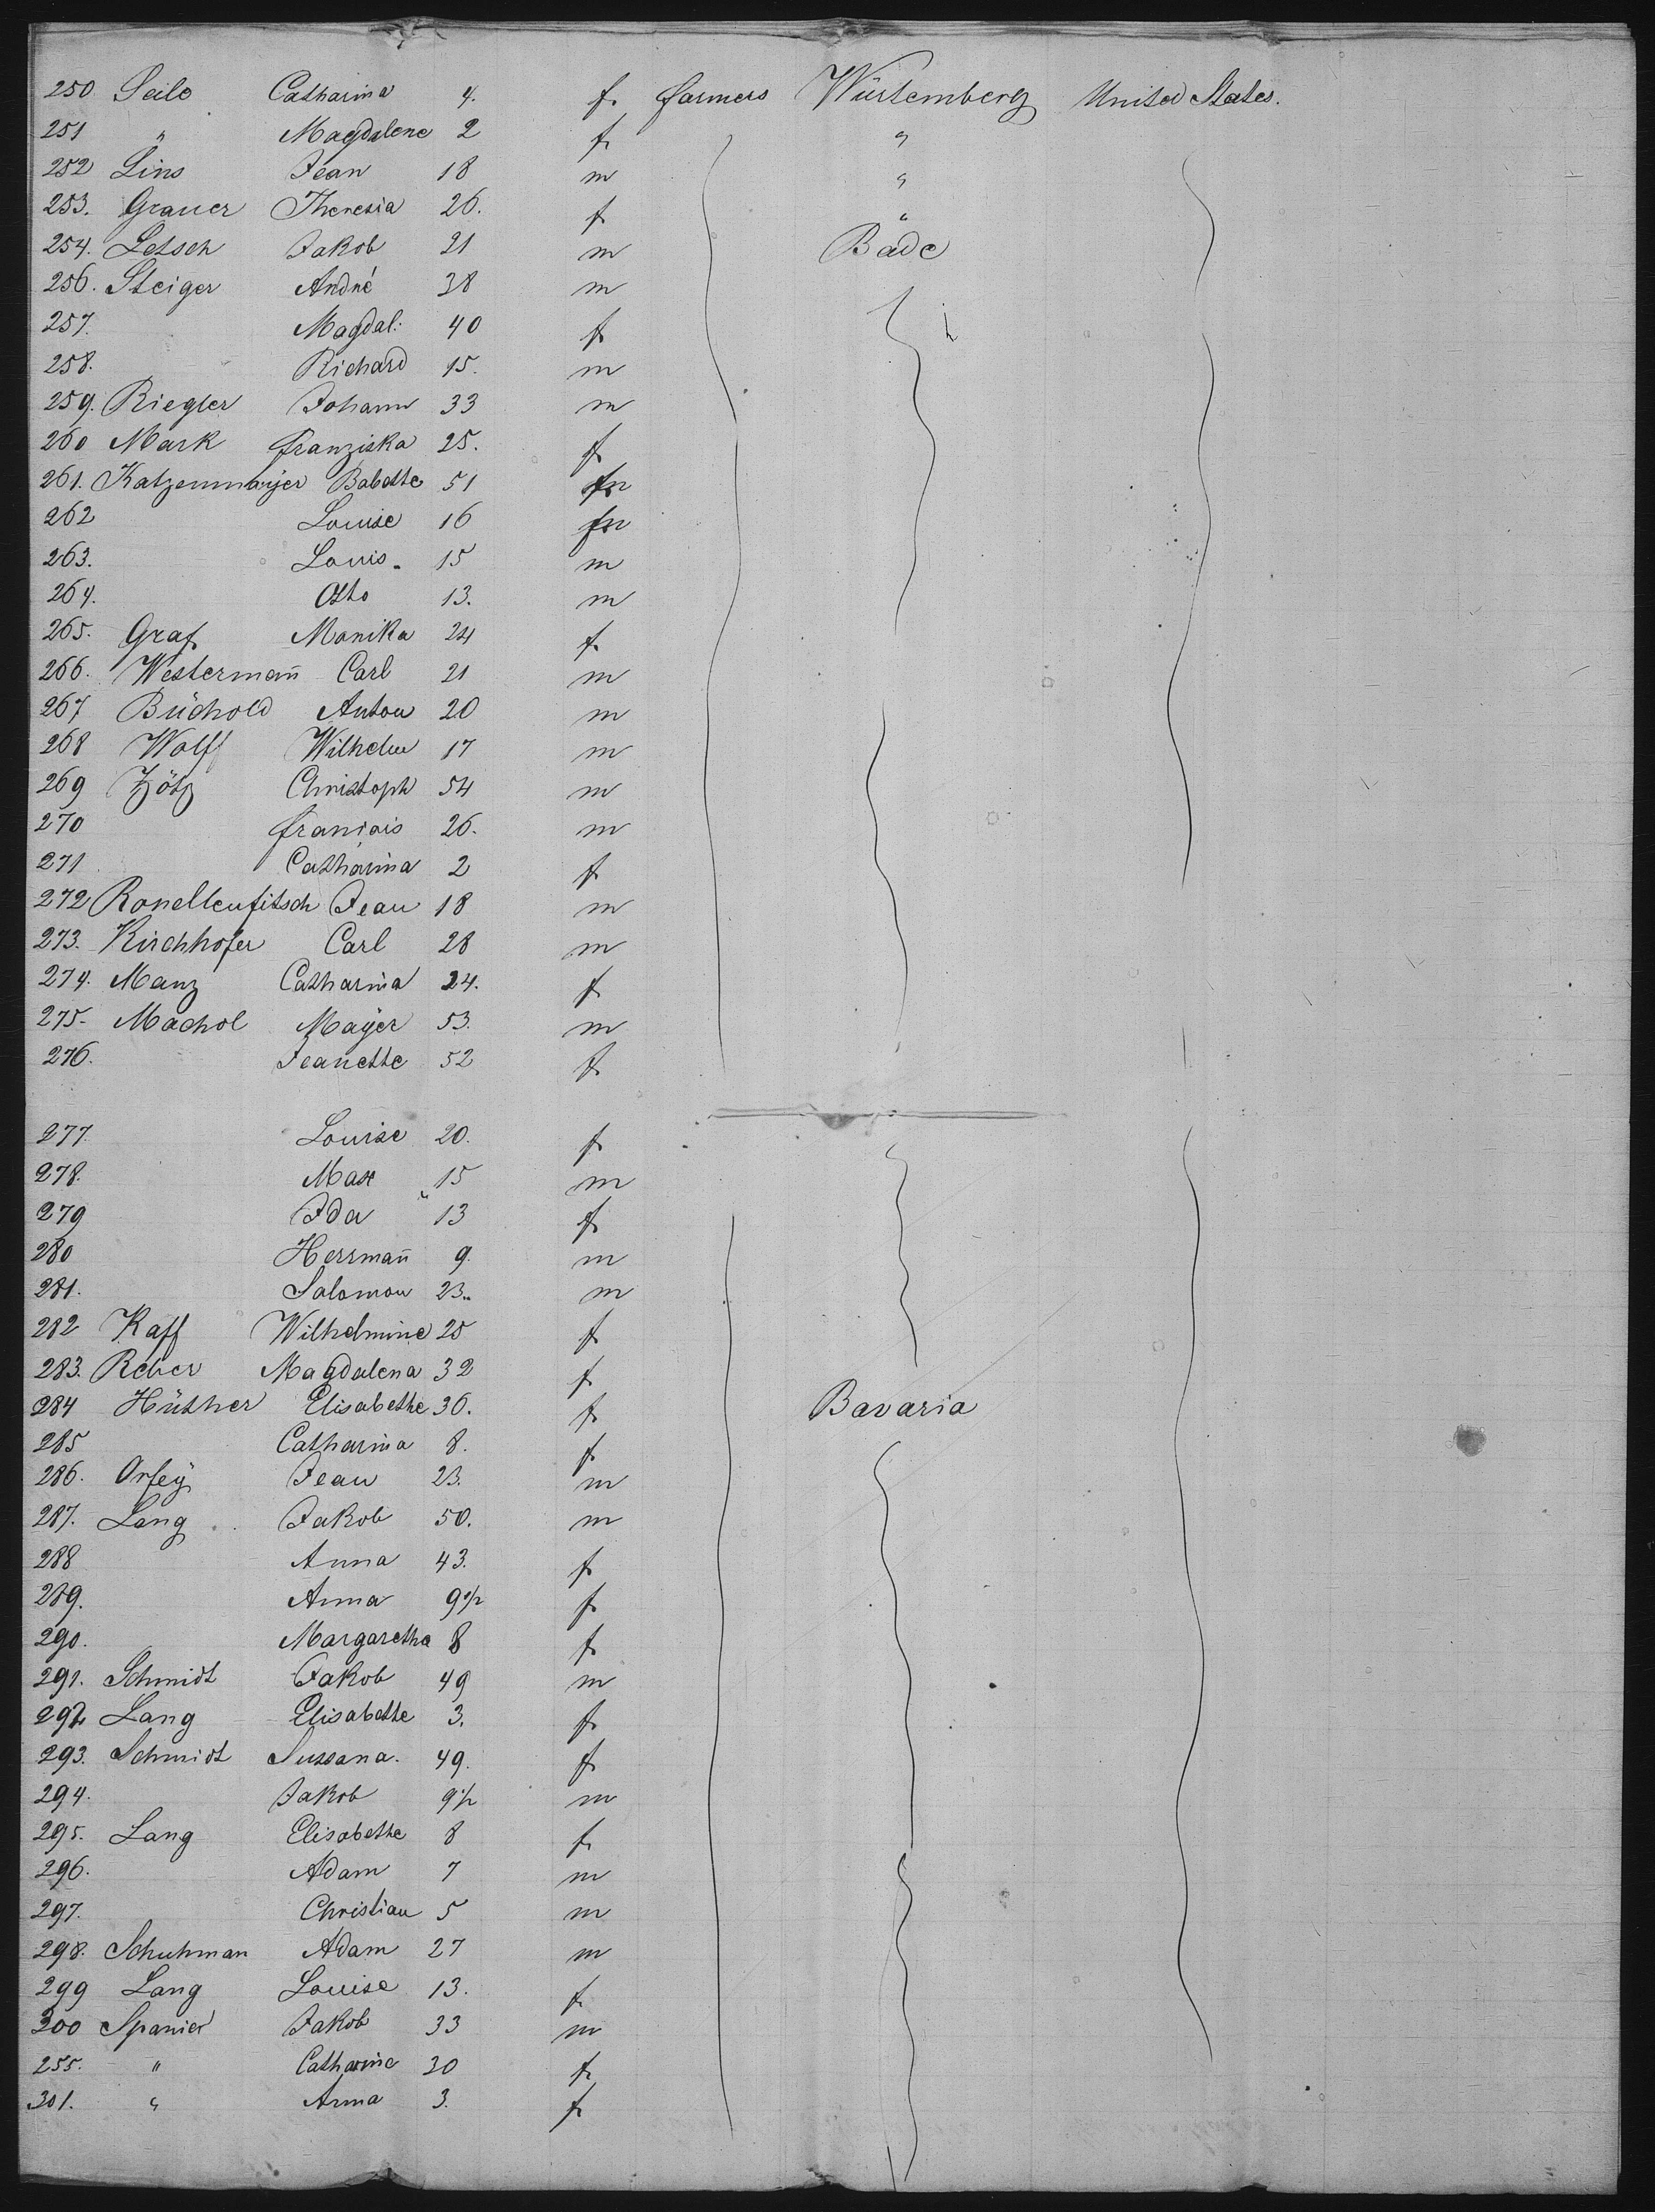 250 Seile Catharina 4. f. farmers Würtemberg United States.
251 " Magdalene 2 f. "
252 Lins Jean 18 m "
253. Grauer Theresia 26. f. "
254. Letsch Jakob 21 m Bade
256. Steiger André 38 m
257. Magdal: 40 f.
258. Richard 15. m
259. Riegler Johann 33 m
260 Mark Franziska 25. f.
261. Katzenmayer Babette 51
262 Louise 16
263. Louis. 15 m
264. Otto 13. m
265. Graf Monika 24 f.
266. Westermañ Carl 21 m
267 Büchold Anton 20 m
268 Wolff Wilhelm 17 m
269 Zötz Christoph 54 m
270 François 26. m
271 Catharina 2 f.
272 Ronellenfitsch Jean 18 m
273. Kirchhofer Carl 28 m
274. Manz Catharina 24. f.
275. Machol Mayer 53. m
276. Jeanette 52 f.
277. Louise 20. f.
278. Max 15 m
279 Ida 13 f.
280 Herrmañ 9. m
281. Salomon 23.. m
282 Kaff Wilhelmine 25 f.
283. Reber Magdalena 32 f.
284 Hüther Elisabethe 36. f. Bavaria
285 Catharina 8. f.
286. Orfeÿ Jean 23. m
287. Lang Jakob 50. m
288 Anna 43. f.
289. Anna 9½ f.
290. Margaretha 8 f.
291. Schmidt Jakob 49 m
292 Lang Elisabethe 3. f.
293. Schmidt Sussana. 49. f.
294. Jakob 9½ m
295. Lang Elisabethe 8 f.
296. Adam 7 m
297. Christian 5 m
298. Schuhman Adam 27 m
299 Lang Louise 13. f.
300 Spanier Jakob 33 m
255. " Catharine 30 f.
301. " Anna 3. f.